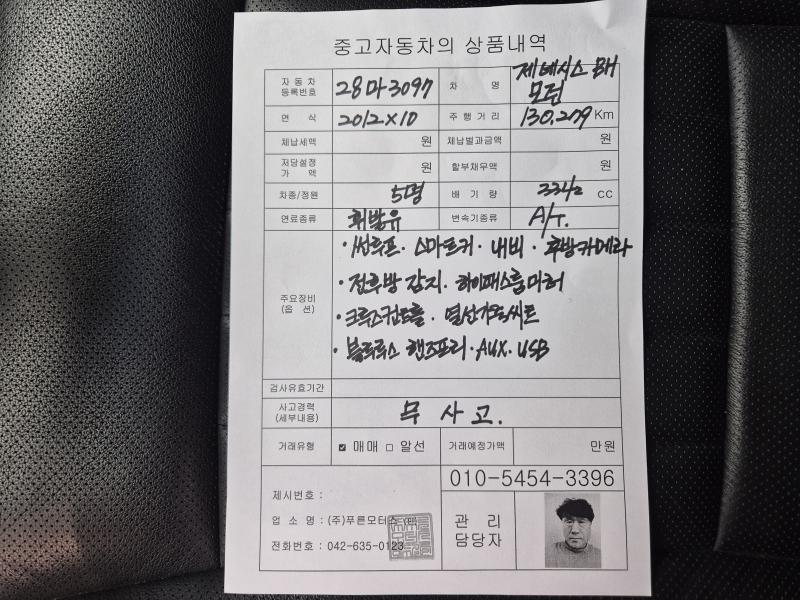 중고자동차의 상품내역
자동차 등록번호 28마3097 차 명 제네시스 BH 모던
면 식 2012×10 주행거리 130,279 Km
체납세액 원 체납벌과금액 원
저당설정 가 액 원 할부채무액 원
차종/정원 5명 배 기 량 3342 CC
연료종류 휘발유 변속기종류 A/T.
주요장비 (옵 션)
·썬루프·스마트키·내비·후방카메라
·전후방 감지·하이패스룸미러
·크루즈컨트롤·열선가동씨트
·블루투스 핸즈프리·AUX·USB
검사유효기간
사고경력 (세부내용) 무 사 고.
거래유형 ☑ 매매 □ 알선 거래예정가액 만원
010-5454-3396
제시번호 :
업 소 명 : (주)푸른모터스
전화번호 : 042-635-0123
관 리
담당자